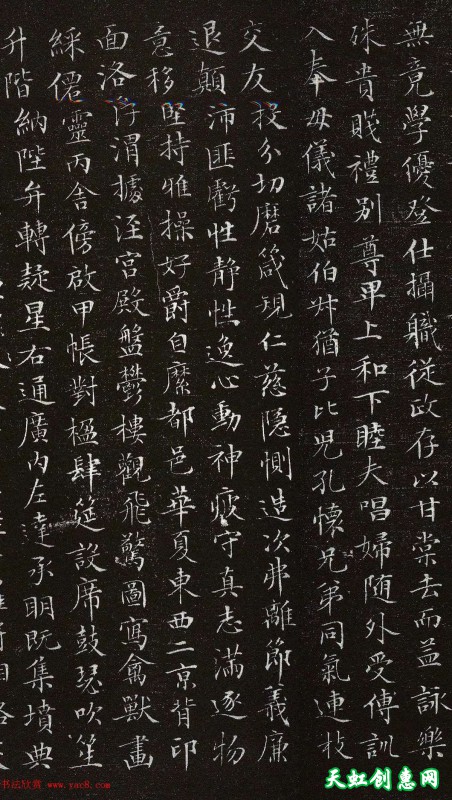 無竟學優登仕攝職從政存以甘棠去而益詠樂
殊貴賤禮別尊卑上和下睦夫唱婦随外受傅訓
入奉母儀諸姑伯叔猶子比兒孔懷兄弟同氣連枝
交友投分切磨箴規仁慈隠惻造次弗離節義廉
退顛沛匪虧性静性逸心動神疲守真志滿逐物
意移堅持雅操好爵自縻都邑華夏東西二京背邙
面洛浮渭據涇宮殿盤鬱樓觀飛驚圖寫禽獸畫
綵僊靈丙舍傍啟甲帳對楹肆筵設席鼓瑟吹笙
升階納陛弁轉疑星右通廣內左達承明既集墳典
书法欣赏 www.yac8.com
天虹创惠网